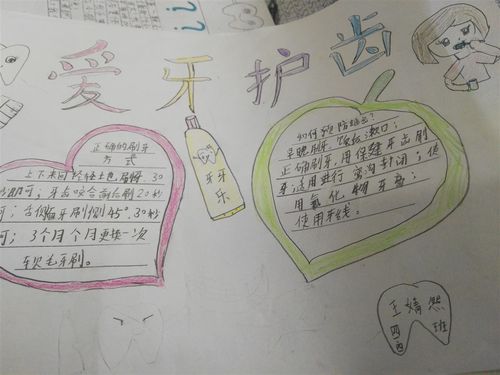 爱牙护齿
正确的刷牙
方式
上下来回轻轻
30
即可；牙齿咬合前后刷20秒
可；舌侧面牙刷倾45°.30秒
可；3个月个月更换一次
软毛牙刷。
牙牙
乐
如何预防蛀牙？
早晚刷牙，饭后漱口；
正确刷牙，用保健牙齿刷
牙；适用进行窝沟封闭；使
用氟化物牙膏；
使用牙线。
王婧熙
四
班